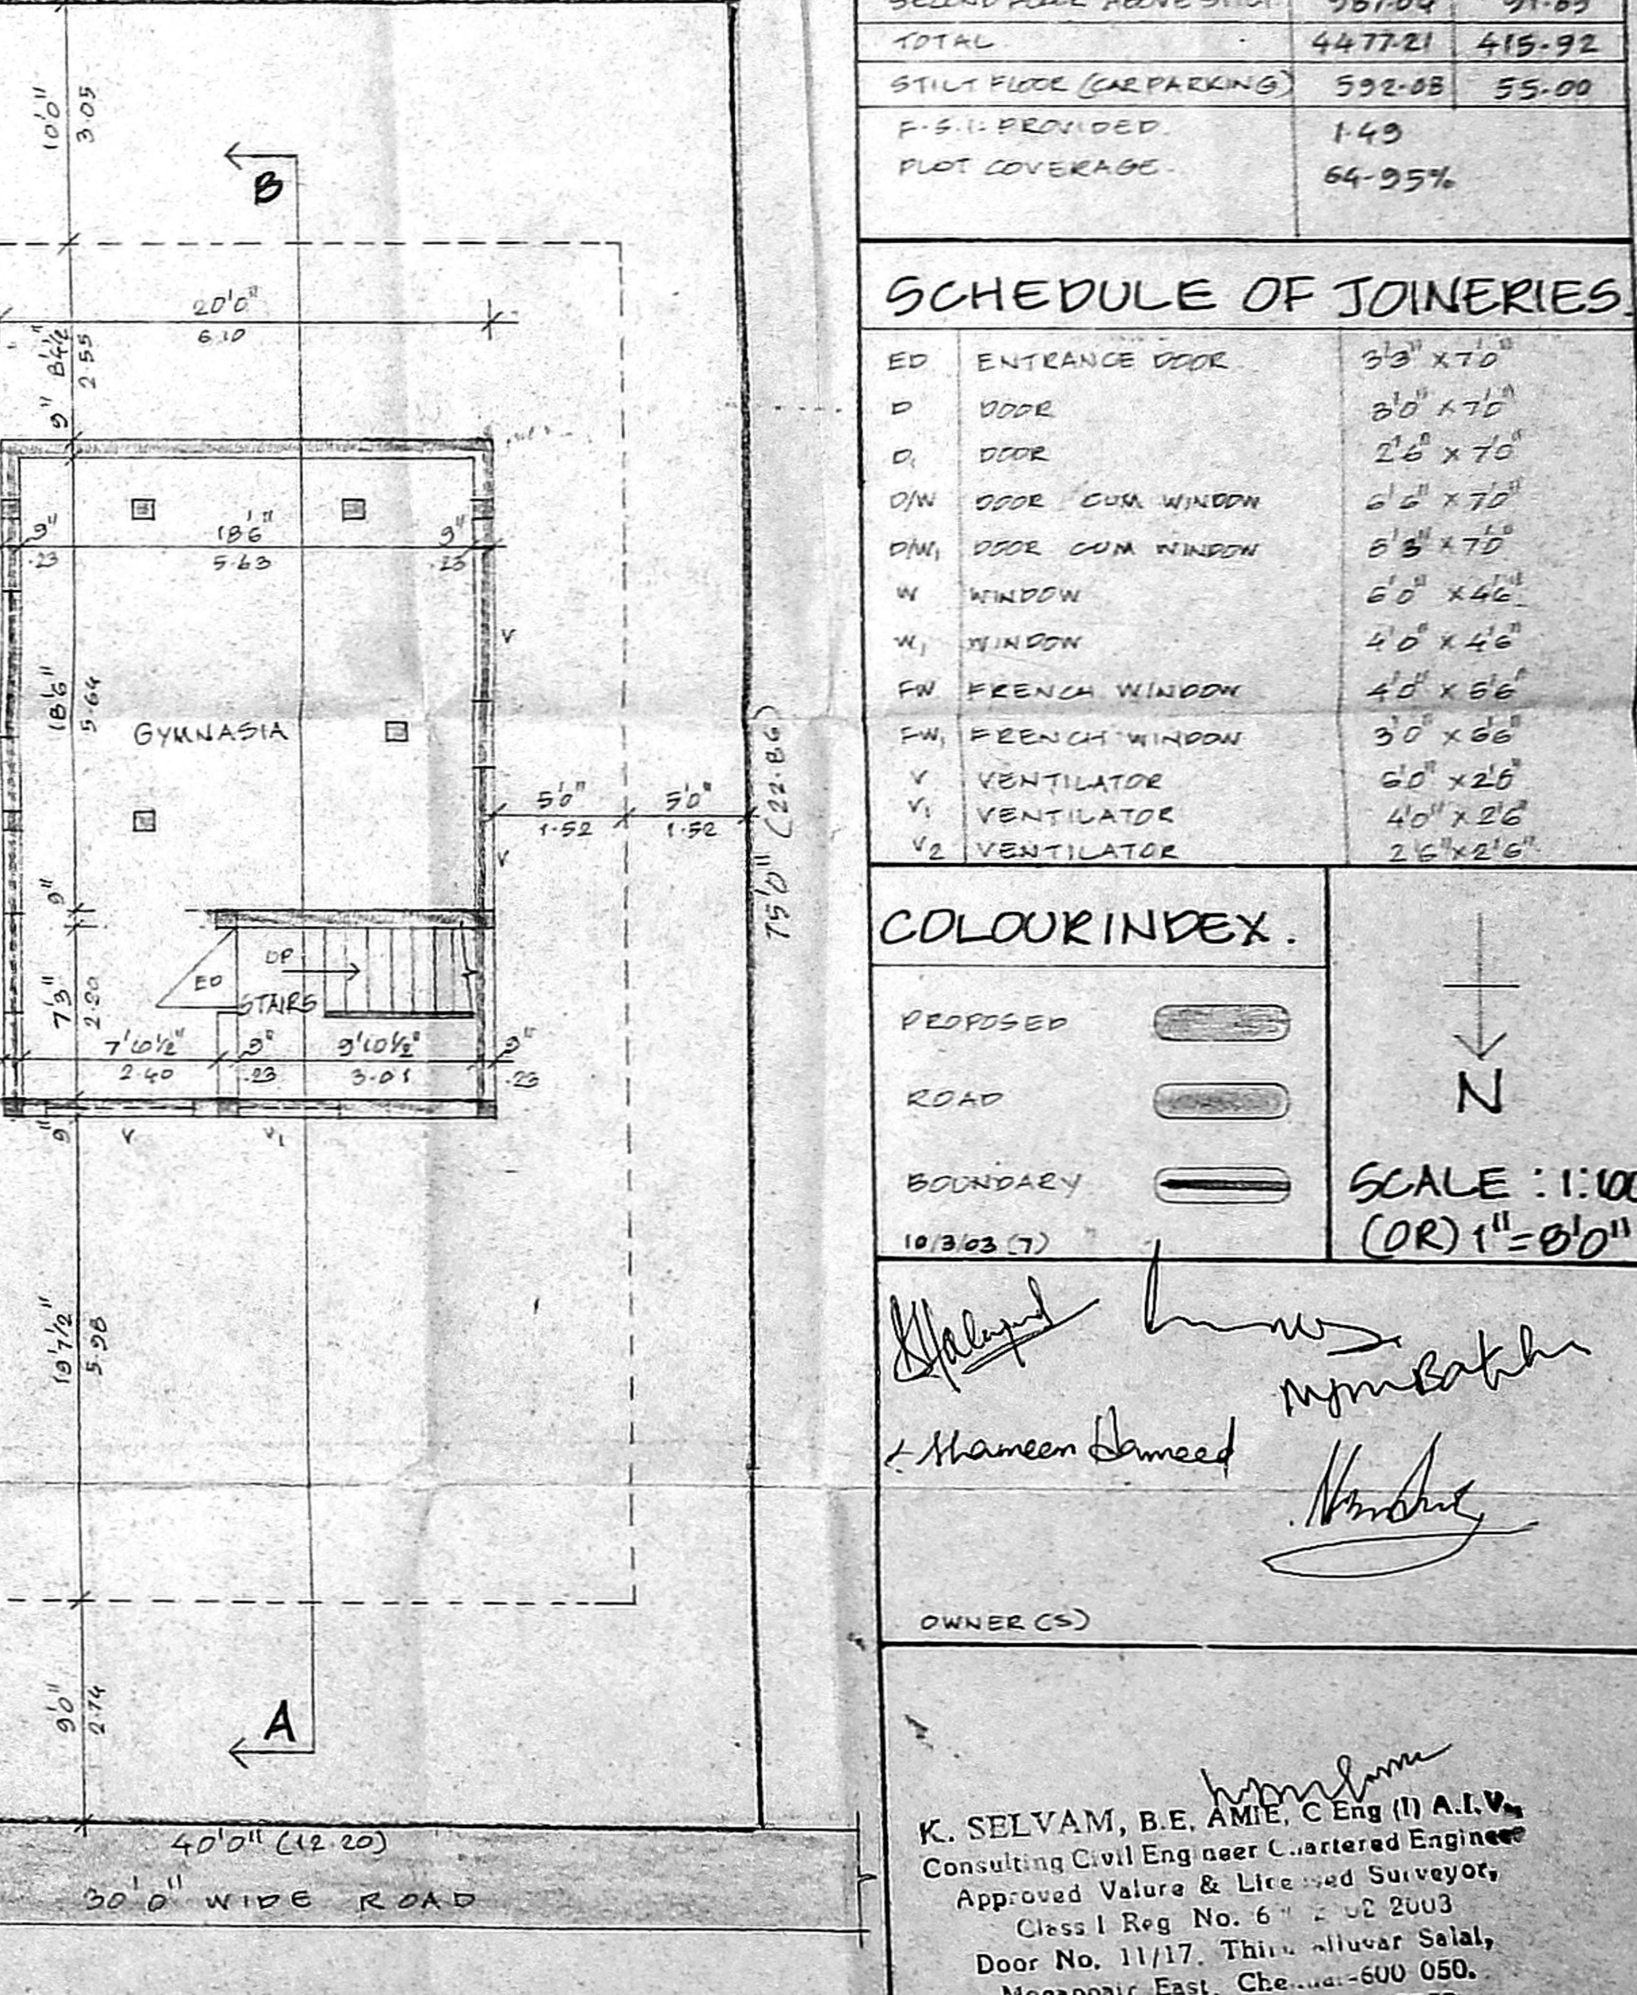 10'0"
3.05
B
20'0"
6.10
8'4½"
2.55
9"
9"
.23
18'6"
5.63
9"
.23
V
18'6"
5.64
GYMNASIA
5'0"
1.52
5'0"
1.52
75'0" (22.86)
V
9"
7'3"
2.20
ED
UP
STAIRS
7'10½"
2.40
9"
.23
9'10½"
3.01
9"
.23
9"
V
V1
19'7½"
5.98
9'0"
2.74
A
40'0" (12.20)
30'0" WIDE ROAD
SECOND FLOOR ABOVE STILT
TOTAL. 4477.21 415.92
STILT FLOOR (CAR PARKING) 592.08 55.00
F.S.I. PROVIDED. 1.49
PLOT COVERAGE. 64.95%
SCHEDULE OF JOINERIES.
ED ENTRANCE DOOR 3'3" X 7'0"
D DOOR 3'0" X 7'0"
D1 DOOR 2'6" X 7'0"
D/W DOOR CUM WINDOW 6'6" X 7'0"
D/W1 DOOR CUM WINDOW X 7'0"
W WINDOW 6'0" X 4'6"
W1 WINDOW 4'0" X 4'6"
FW FRENCH WINDOW 4'0" X
FW1 FRENCH WINDOW 3'0" X 6'6"
V VENTILATOR 6'0" X 2'6"
V1 VENTILATOR 4'0" X 2'6"
V2 VENTILATOR 2'6" X 2'6"
COLOUR INDEX.
PROPOSED
ROAD
BOUNDARY
10/3/03 (7)
N
SCALE : 1:100
(OR) 1"=8'0"
Shameen Hameed
OWNER (S)
K. SELVAM, B.E. AMIE, C Eng (I) A.I.V.,
Consulting Civil Engineer Chartered Engineer
Approved Valure & Licensed Surveyor,
Class I Reg No. 6 2003
Door No. 11/17, Thiruvalluvar Salai,
Mogappair East, Chennai-600 050.